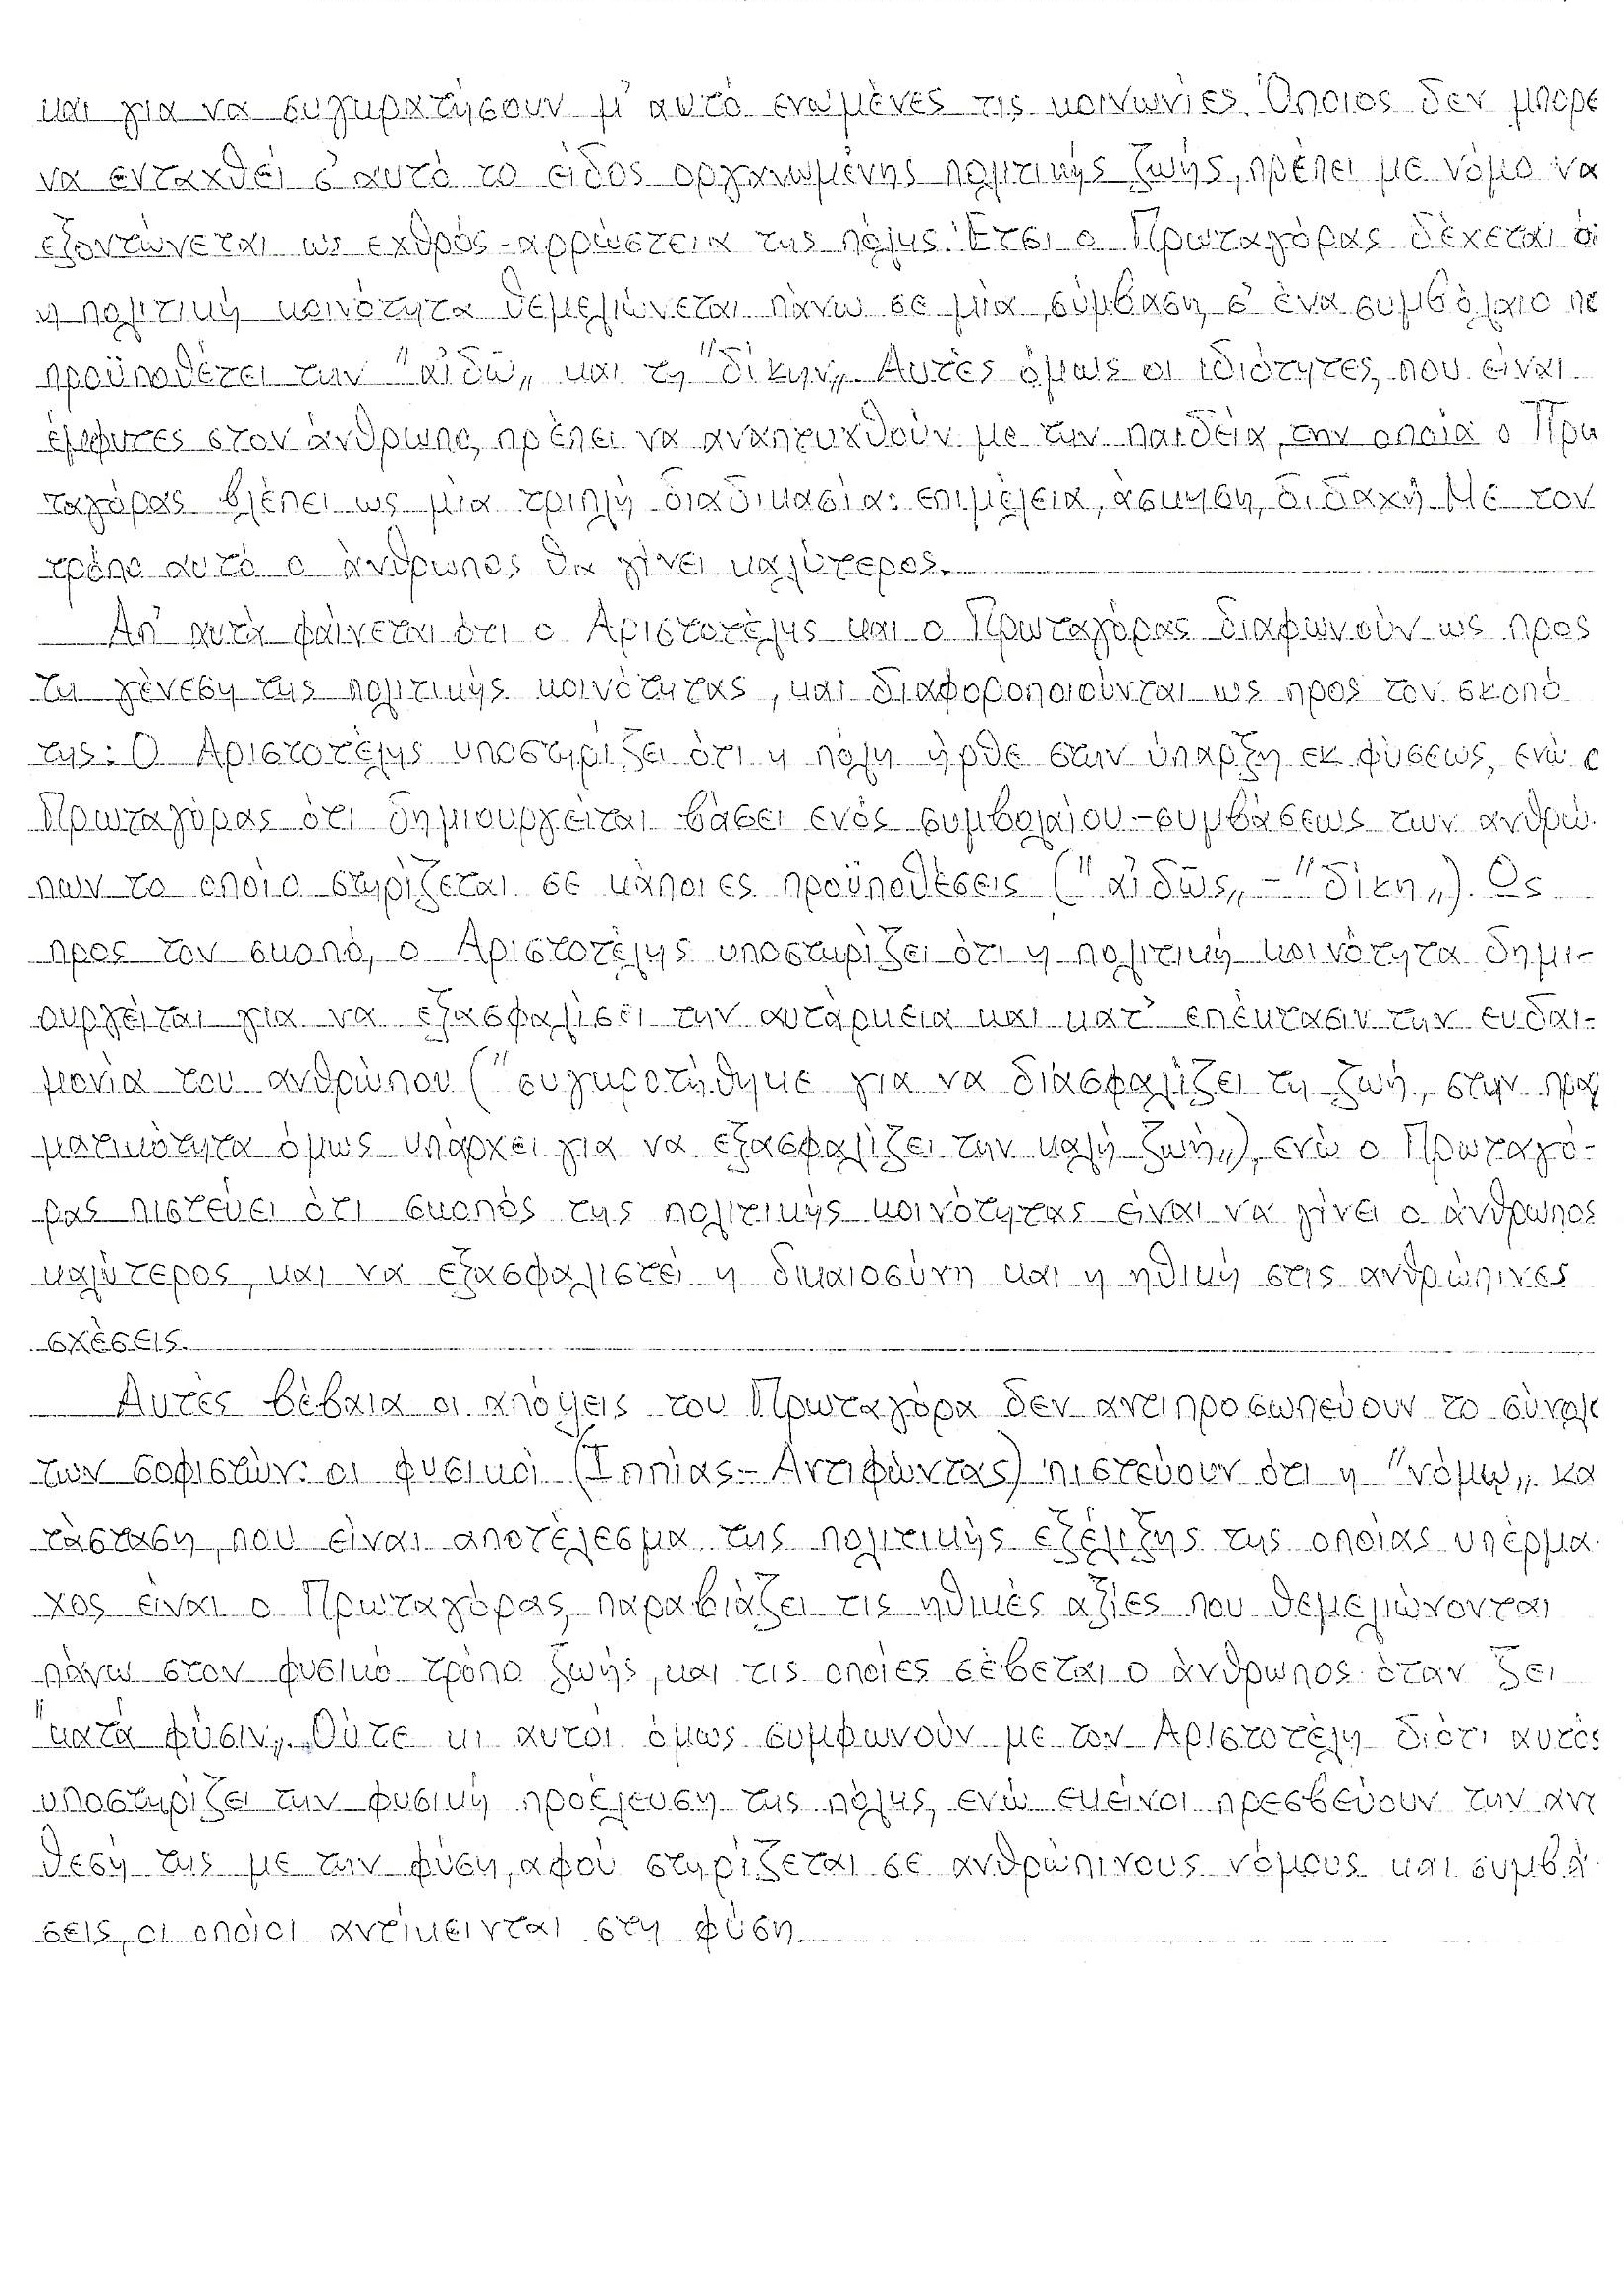 και για να συγκρατήσουν μ' αυτό ενωμένες τις κοινωνίες. Όποιος δεν μπορε
να ενταχθεί σ' αυτό το είδος οργανωμένης πολιτικής ζωής, πρέπει με νόμο να
εξοντώνεται ως εχθρός-αρρώστεια της πόλης. Έτσι ο Πρωταγόρας δέχεται ό
η πολιτική κοινότητα θεμελιώνεται πάνω σε μία σύμβαση, σ' ένα συμβόλαιο πο
προϋποθέτει την "αἰδῶ„ και τη "δίκην„. Αυτές όμως οι ιδιότητες, που είναι
έμφυτες στον άνθρωπο, πρέπει να αναπτυχθούν με την παιδεία, την οποία ο Πρω
ταγόρας βλέπει ως μία τριπλή διαδικασία: επιμέλεια, άσκηση, διδαχή. Με τον
τρόπο αυτό ο άνθρωπος θα γίνει καλύτερος.
Απ' αυτά φαίνεται ότι ο Αριστοτέλης και ο Πρωταγόρας διαφωνούν ως προς
τη γένεση της πολιτικής κοινότητας, και διαφοροποιούνται ως προς τον σκοπό
της: Ο Αριστοτέλης υποστηρίζει ότι η πόλη ήρθε στην ύπαρξη εκ φύσεως, ενώ ο
Πρωταγόρας ότι δημιουργείται βάσει ενός συμβολαίου-συμβάσεως των ανθρώ-
πων το οποίο στηρίζεται σε κάποιες προϋποθέσεις ("αἰδῶς„-"δίκη„). Ως
προς τον σκοπό, ο Αριστοτέλης υποστηρίζει ότι η πολιτική κοινότητα δημι-
ουργείται για να εξασφαλίσει την αυτάρκεια και κατ' επέκτασιν την ευδαι-
μονία του ανθρώπου ("συγκροτήθηκε για να διασφαλίζει τη ζωή, στην πραγ
ματικότητα όμως υπάρχει για να εξασφαλίζει την καλή ζωή„), ενώ ο Πρωταγό-
ρας πιστεύει ότι σκοπός της πολιτικής κοινότητας είναι να γίνει ο άνθρωπος
καλύτερος, και να εξασφαλιστεί η δικαιοσύνη και η ηθική στις ανθρώπινες
σχέσεις.
Αυτές βέβαια οι απόψεις του Πρωταγόρα δεν αντιπροσωπεύουν το σύνολο
των σοφιστών: οι φυσικοί (Ιππίας-Αντιφώντας) πιστεύουν ότι η "νόμῳ„ κα
τάσταση, που είναι αποτέλεσμα της πολιτικής εξέλιξης της οποίας υπέρμα-
χος είναι ο Πρωταγόρας, παραβιάζει τις ηθικές αξίες που θεμελιώνονται
πάνω στον φυσικό τρόπο ζωής, και τις οποίες σέβεται ο άνθρωπος όταν ζει
"κατά φύσιν„. Ούτε κι αυτοί όμως συμφωνούν με τον Αριστοτέλη διότι αυτός
υποστηρίζει την φυσική προέλευση της πόλης, ενώ εκείνοι πρεσβεύουν την αντ
θεσή της με την φύση, αφού στηρίζεται σε ανθρώπινους νόμους και συμβά-
σεις, οι οποίοι αντίκεινται στη φύση